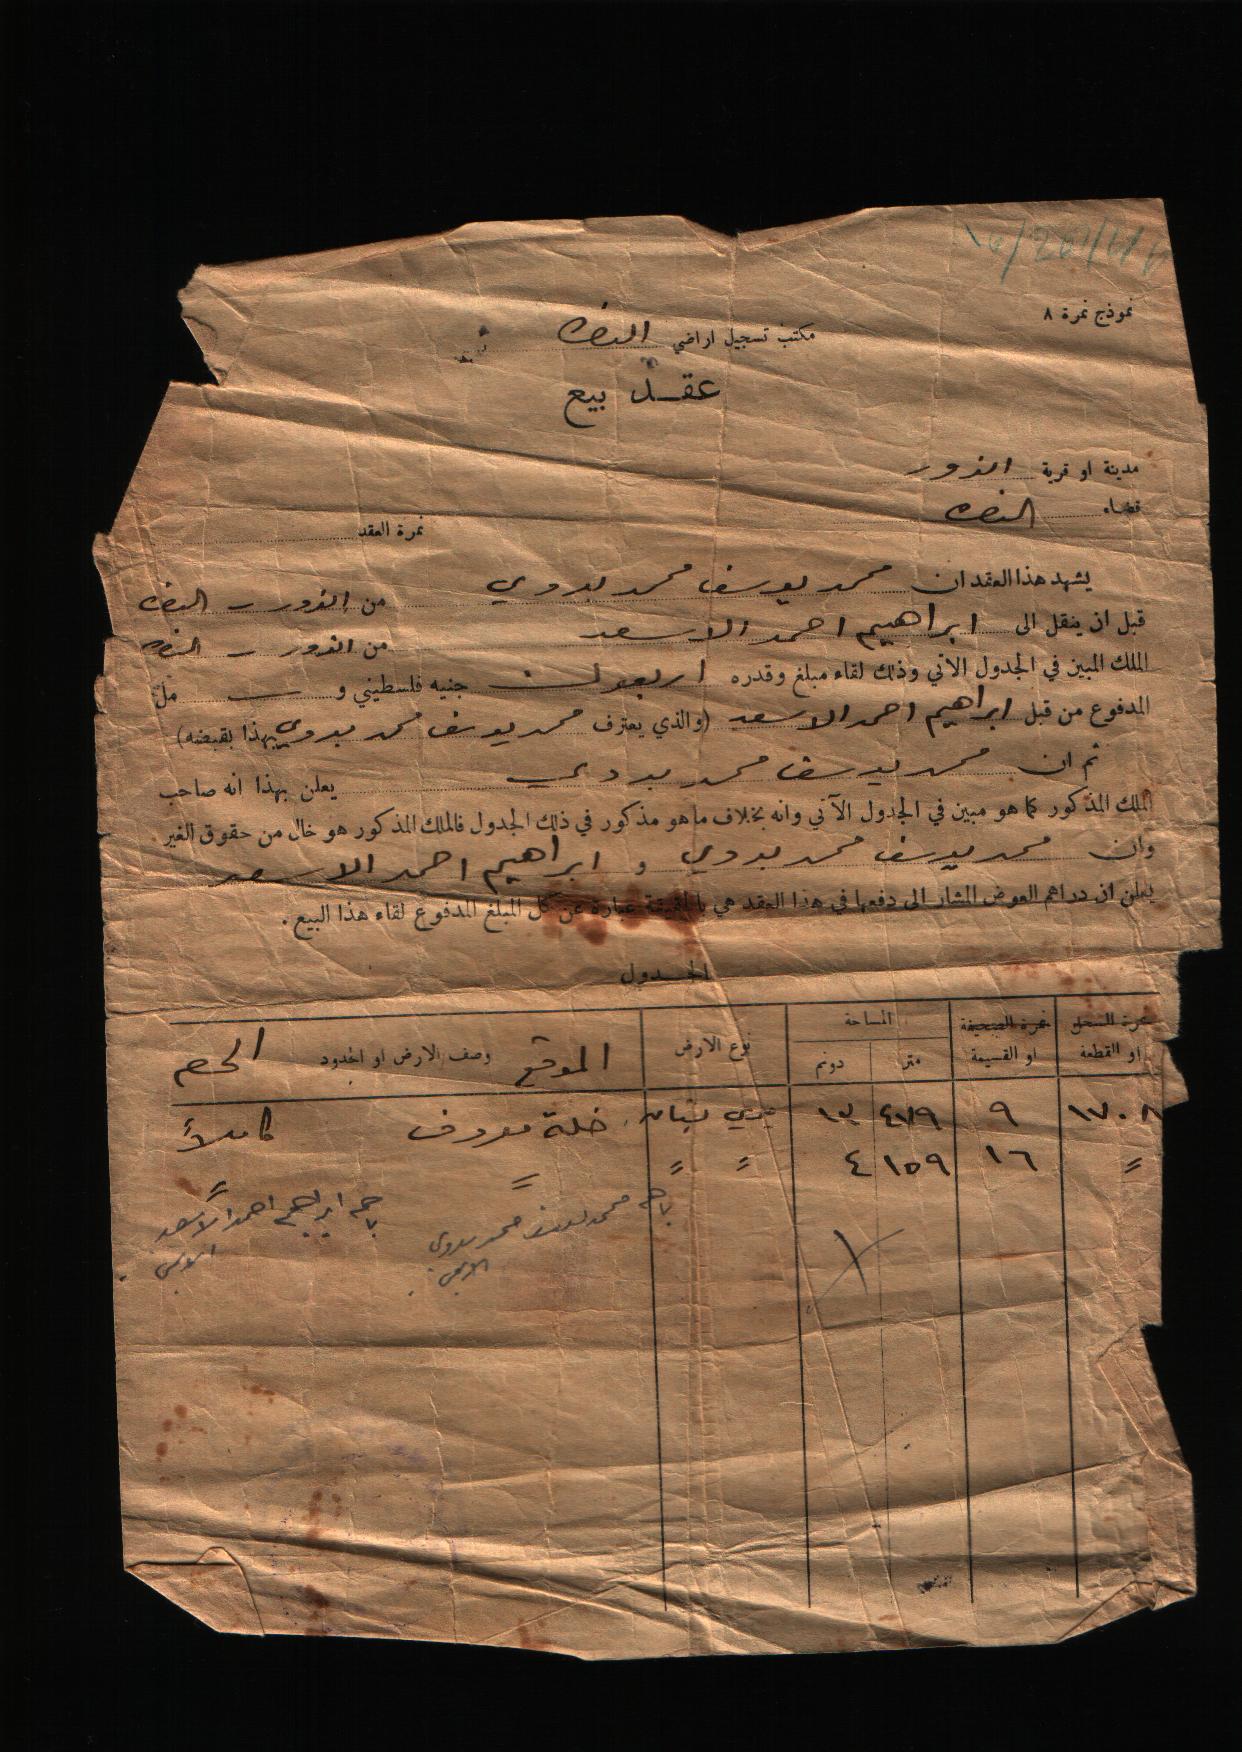 نموذج نمرة ٨
مكتب تسجيل اراضي
عقد بيع
مدينة او قرية
قضاء
نمرة العقد
يشهد هذا العقد ان محمد يوسف محمد بدوي من
قبل ان ينقل الى ابراهيم احمد الاسعد من
الملك المبين في الجدول الآتي وذلك لقاء مبلغ وقدره اربعون جنيه فلسطيني و — ملّ
المدفوع من قبل ابراهيم احمد الاسعد (والذي يعترف محمد يوسف محمد بدوي بهذا بقبضه)
ثم ان محمد يوسف محمد بدوي يعلن بهذا انه صاحب
الملك المذكور كما هو مبين في الجدول الآتي وانه بخلاف ما هو مذكور في ذلك الجدول فالملك المذكور هو خال من حقوق الغير
وان محمد يوسف محمد بدوي و ابراهيم احمد الاسعد
يعلن ان دراهم العوض المشار الى دفعها في هذا العقد هي بالحقيقة عبارة عن كل المبلغ المدفوع لقاء هذا البيع.
الجدول
نمرة السجل او القطعة نمرة الصحيفة او القسيمة المساحة متر دونم نوع الارض الموقع وصف الارض او الحدود
١٧٠٨ ٩ ٤٧٩ ١٣ ميري خلة معروف كاملاً
〃 ١٦ ١٥٩ ٤ 〃 〃 〃 〃
محمد يوسف محمد بدوي
ابراهيم احمد الاسعد